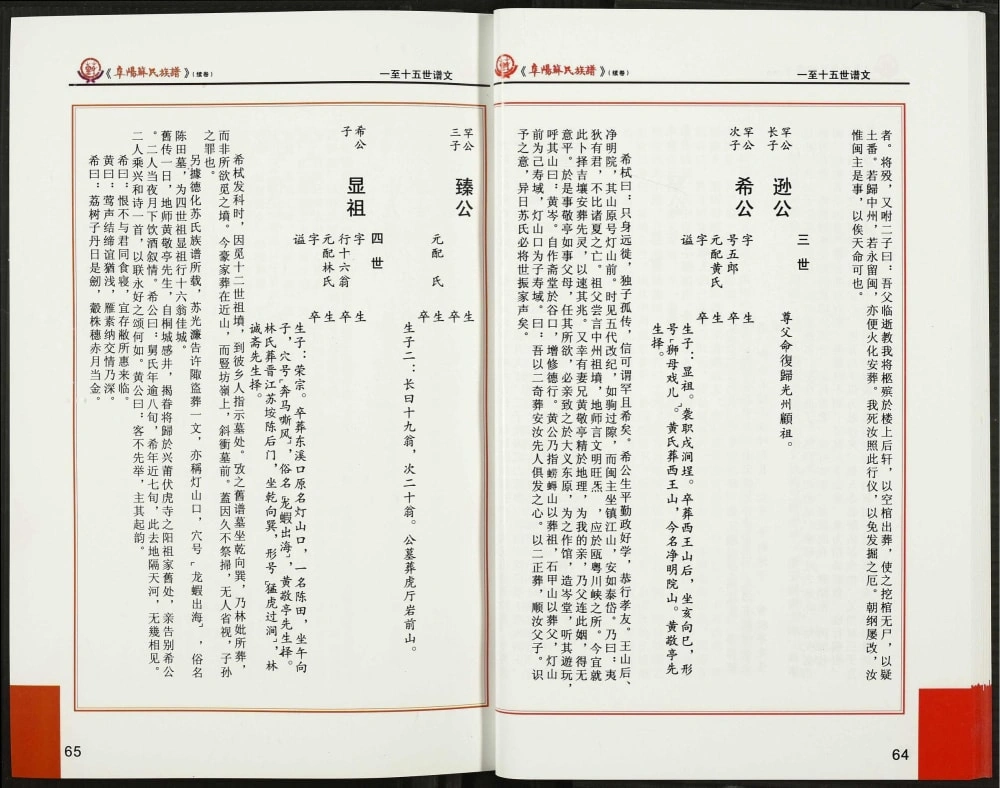 《阜陽蘇民族譜》(续卷)
一至十五世谱文
者。将殁，又咐二子曰：吾父临逝教我将柩殡於楼上后轩，以空棺出葬，使之挖棺无尸，以疑
土番。若歸中州，若永留闽，亦便火化安葬。我死汝照此行仪，以免发掘之厄。朝纲屡改，汝
惟闽主是事，以俟天命可也。
三世
罕公长子
逊公
尊父命復歸光州顧祖。
罕公次子
希公
字
号五郎
元配黄氏
谥
生卒
生卒
生子：显祖。袭职戍涧埕。卒葬西王山后，坐亥向巳，形
号「狮母戏儿」。黄氏葬西王山，今名净明院山。黄敬亭先
生择。
希栻曰：只身远徙，独子孤传，信可谓罕且希矣。希公生平勤政好学，恭行孝友。王山后、
净明院，其山原号灯山前。时见五代改纪，如驹过隙，而闽主坐镇江山，安如泰岱。乃曰：夷
狄有君，不比诸夏之亡。祖父尝言中州祖墳，地师言文明旺炁，应於瓯粤川峡之所。今宜就
此卜择吉壤安葬先灵，以速其兆。又幸有妻兄黄敬亭精於地理，为我的亲，乃父连此姻，得无
意平。於是事敬亭如事父母，任其所欲，必亲致之於大义东原，为之作馆，造岑堂，听其遊玩，
呼其山曰：黄岑。自作斋堂於谷口，增修德行。黄公乃指螃蟳山以葬祖，石甲山以葬父，灯山
前为己寿域，灯山口为子寿域。曰：吾以二奇葬安汝先人俱发之心。以二正葬，顺汝父子。识
予之意，异日苏氏必将世振家声矣。
64
《阜陽蘇民族譜》(续卷)
一至十五世谱文
罕公三子
臻公
元配　氏
生卒
生卒
生子二：长曰十九翁，次二十翁。公墓葬虎厅岩前山。
四世
希公子
显祖
字
行十六翁
元配林氏
字
谥
生卒
生卒
生子：荣宗。卒葬东溪口原名灯山口，一名陈田，坐午向
子，穴号「奔马嘶风」，俗名「龙蝦出海」，黄敬亭先生择。
林氏葬晋江苏垵陈后门，坐乾向巽，形号「猛虎过涧」，林
诚斋先生择。
希栻发科时，因觅十二世祖墳，到彼乡人指示墓处。攷之舊谱墓坐乾向巽，乃林妣所葬，
而非所欲觅之墳。今豪家葬在近山，而豎坊嶺上，斜衝墓前。蓋因久不祭掃，无人省视，子孙
之罪也。
另據德化苏氏族谱所载，苏光濂告许陬盗葬一文，亦稱灯山口，穴号「龙蝦出海」，俗名
陈田墓，为四世祖显祖行十六翁佳城。
舊传一日，地师黄敬亭先生，自桐城感并，揭眷将歸於兴莆伏虎寺之阳祖家舊处，亲告别希公
。二人当夜月下饮酒叙情。希公曰：舅氏年逾八旬，希年近七旬，此去地隔天河，无幾相见。
二人乘兴和诗一首，以联永好之颂何如。黄公曰：客不先举，主其起韵。
希曰：恨不与君同食寝，宜存敝所惠来临。
黄曰：莺声结缔谊猶浅，雁素纳交情乃深。
希曰：荔树子丹日是劍，觳株穗赤月当金。
65